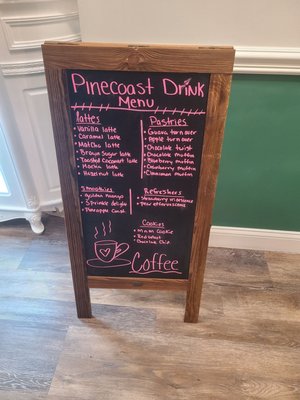 Pinecoast Drink
Menu
lattes
• Vanilla latte
• Caramel latte
• Matcha latte
• Brown Sugar latte
• Toasted Coconut latte
• Mocha latte
• Hazelnut latte
Pastries
• Guava turnover
• Apple turnover
• Chocolate twist
• Chocolate muffin
• Blueberry muffin
• Cranberry muffin
• Cinnamon muffin
Smoothies
• Golden mango
• Sprinkle delight
• Pineapple
Refreshers
• Strawberry
• Pear
Cookies
• M&M Cookie
• Red Velvet
• Chocolate Chip
Coffee